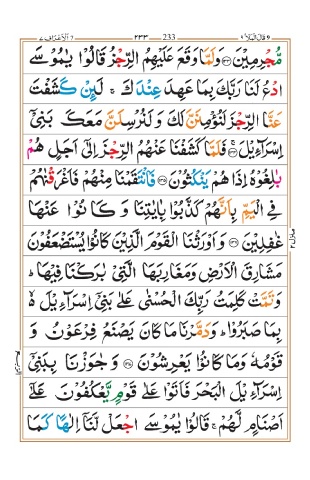 الاعراف ٧ ٢٣٣ 233 قال الملا ٩
مُّجْرِمِيْنَ ﴿۱۳۳﴾ وَلَمَّا وَقَعَ عَلَيْهِمُ الرِّجْزُ قَالُوْا يٰمُوْسَى
ادْعُ لَنَا رَبَّكَ بِمَا عَهِدَ عِنْدَكَ ۚ لَئِنْ كَشَفْتَ
عَنَّا الرِّجْزَ لَنُؤْمِنَنَّ لَكَ وَلَنُرْسِلَنَّ مَعَكَ بَنِيْۤ
اِسْرَآءِيْلَ ﴿۱۳۴﴾ فَلَمَّا كَشَفْنَا عَنْهُمُ الرِّجْزَ اِلٰۤى اَجَلٍ هُمْ
بٰلِغُوْهُ اِذَا هُمْ يَنْكُثُوْنَ ﴿۱۳۵﴾ فَانْتَقَمْنَا مِنْهُمْ فَاَغْرَقْنٰهُمْ
فِي الْيَمِّ بِاَنَّهُمْ كَذَّبُوْا بِاٰيٰتِنَا وَكَانُوْا عَنْهَا
غٰفِلِيْنَ ﴿۱۳۶﴾ وَاَوْرَثْنَا الْقَوْمَ الَّذِيْنَ كَانُوْا يُسْتَضْعَفُوْنَ
مَشَارِقَ الْاَرْضِ وَمَغَارِبَهَا الَّتِيْ بٰرَكْنَا فِيْهَا ؕ
وَتَمَّتْ كَلِمَتُ رَبِّكَ الْحُسْنٰى عَلٰى بَنِيْۤ اِسْرَآءِيْلَ ۙ
بِمَا صَبَرُوْا ؕ وَدَمَّرْنَا مَا كَانَ يَصْنَعُ فِرْعَوْنُ وَ
قَوْمُهٗ وَمَا كَانُوْا يَعْرِشُوْنَ ﴿۱۳۷﴾ وَجٰوَزْنَا بِبَنِيْۤ
اِسْرَآءِيْلَ الْبَحْرَ فَاَتَوْا عَلٰى قَوْمٍ يَّعْكُفُوْنَ عَلٰۤى
اَصْنَامٍ لَّهُمْ ۚ قَالُوْا يٰمُوْسَى اجْعَلْ لَّنَاۤ اِلٰهًا كَمَا